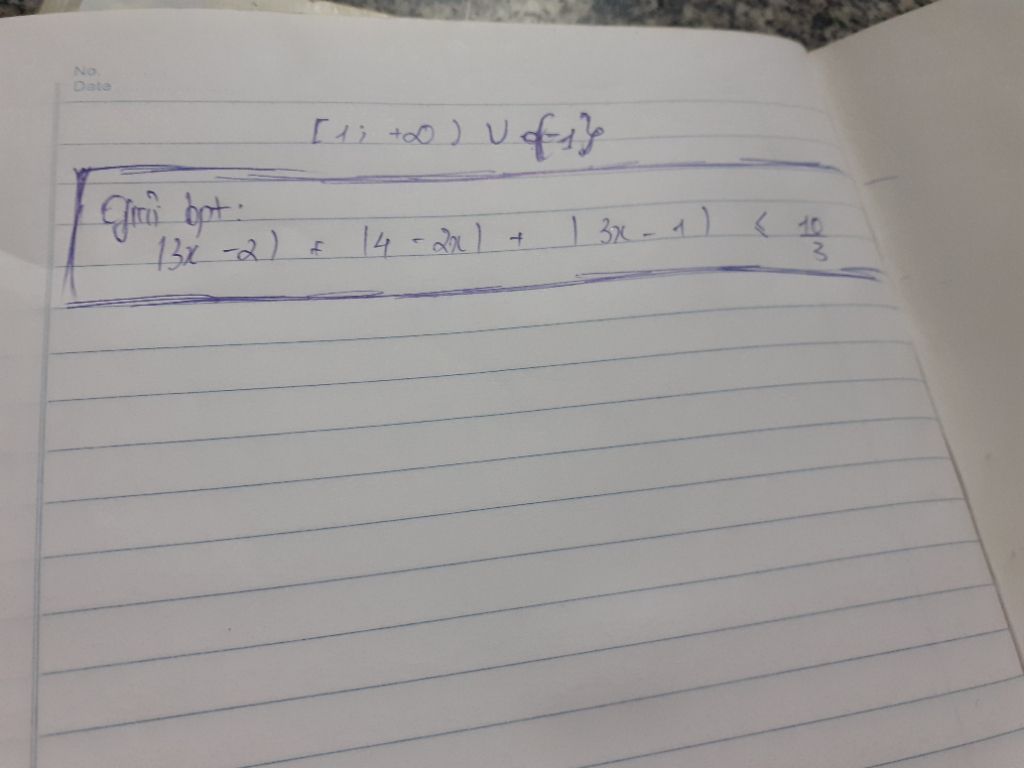 No.
Date
[1; +∞) ∪ {-1}
Giải bpt:
|3x - 2| + |4 - 2x| + |3x - 1| < 10/3